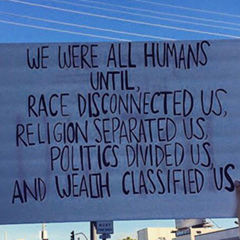 WE WERE ALL HUMANS
UNTIL,
RACE DISCONNECTED US,
RELIGION SEPARATED US,
POLITICS DIVIDED US,
AND WEALTH CLASSIFIED US.